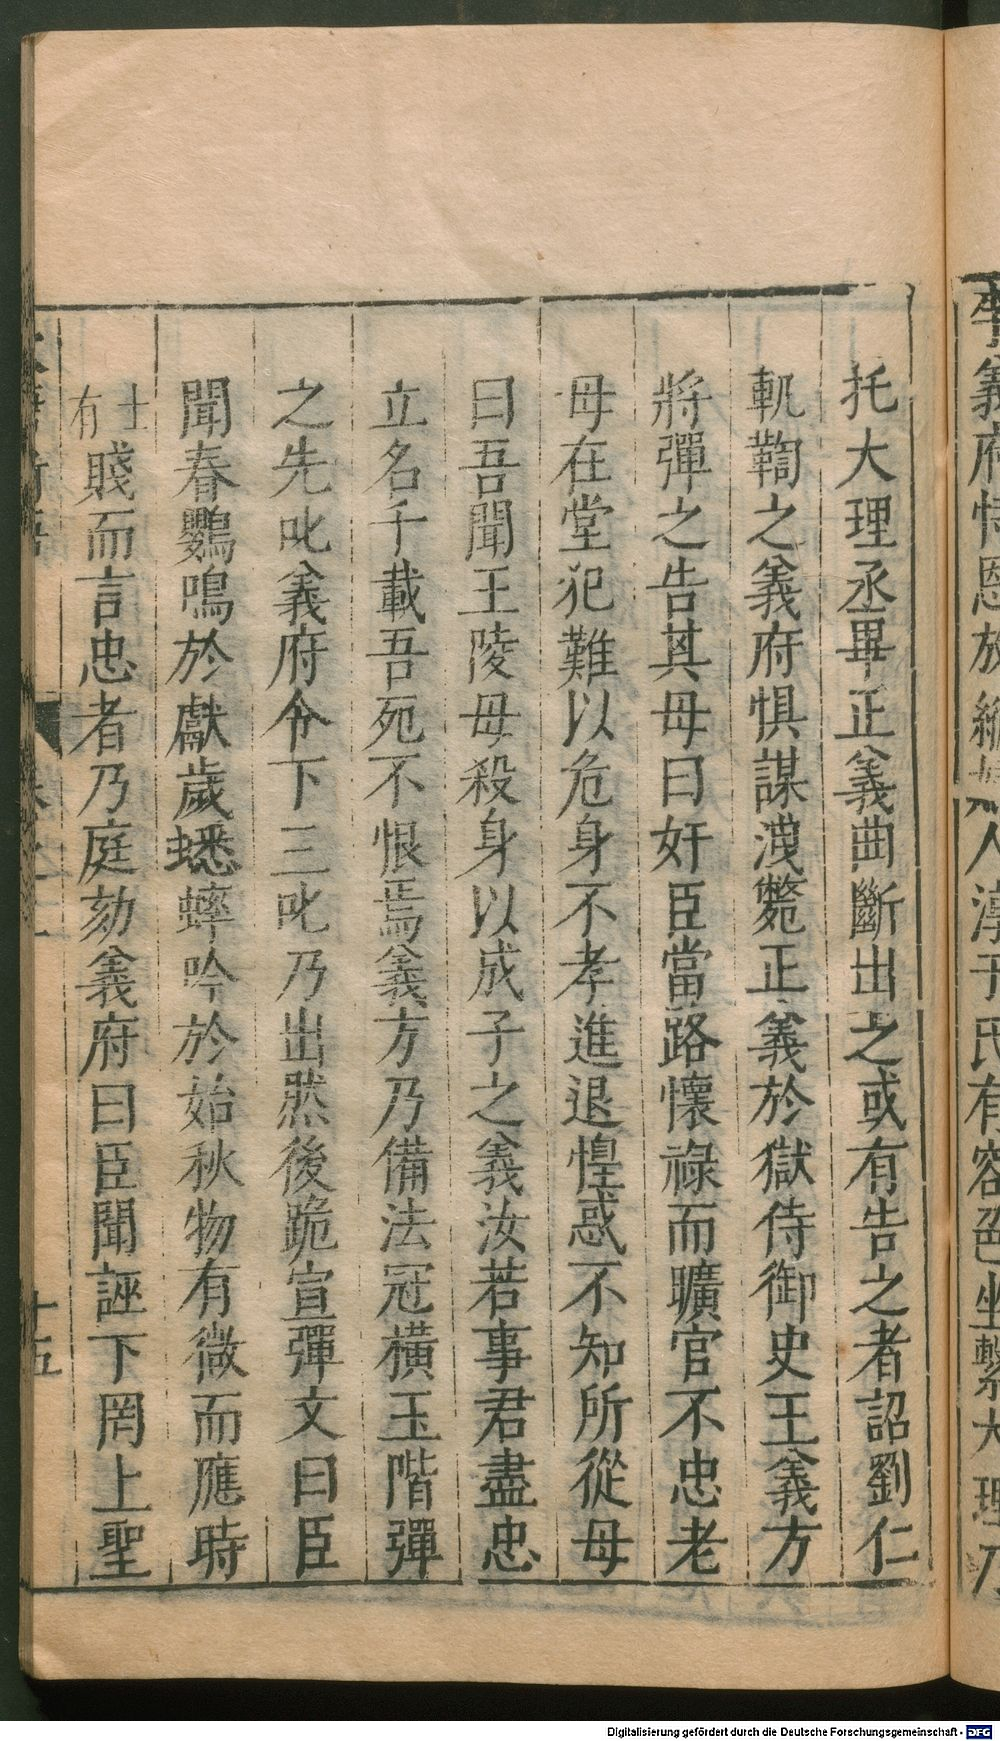 李義府恃恩放縱婦人淳于氏有容色坐繫大理乃
托大理丞畢正義曲斷出之或有告之者詔劉仁
軌鞫之義府惧謀洩斃正義於獄侍御史王義方
將彈之告其母曰奸臣當路懷祿而曠官不忠老
母在堂犯難以危身不孝進退惶惑不知所從母
曰吾聞王陵母殺身以成子之義汝若事君盡忠
立名千載吾死不恨焉義方乃備法冠橫玉階彈
之先叱義府令下三叱乃出然後跪宣彈文曰臣
聞春鸚鳴於獻歲蟋蟀吟於始秋物有微而應時
士有賤而言忠者乃庭劾義府曰臣聞誣下罔上聖
十五
Digitalisierung gefördert durch die Deutsche Forschungsgemeinschaft - DFG